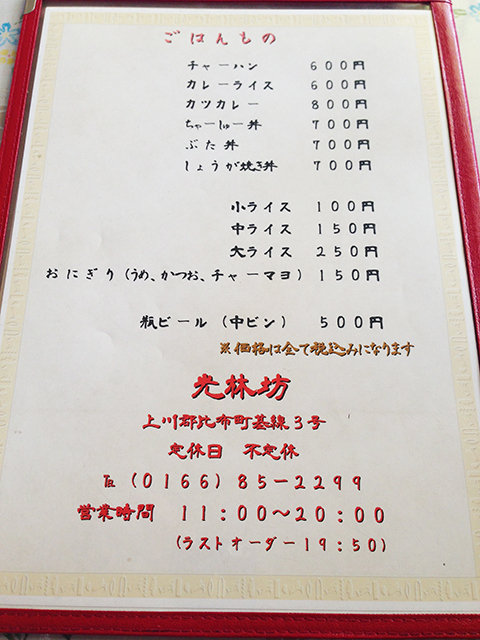 ごはんもの
チャーハン　６００円
カレーライス　６００円
カツカレー　８００円
ちゃーしゅー丼　７００円
ぶた丼　７００円
しょうが焼き丼　７００円
小ライス　１００円
中ライス　１５０円
大ライス　２５０円
おにぎり（うめ、かつお、チャーマヨ）１５０円
瓶ビール（中ビン）　５００円
※価格は全て税込みになります
光林坊
上川郡比布町基線３号
定休日　不定休
℡（０１６６）８５－２２９９
営業時間　１１：００～２０：００
（ラストオーダー１９：５０）